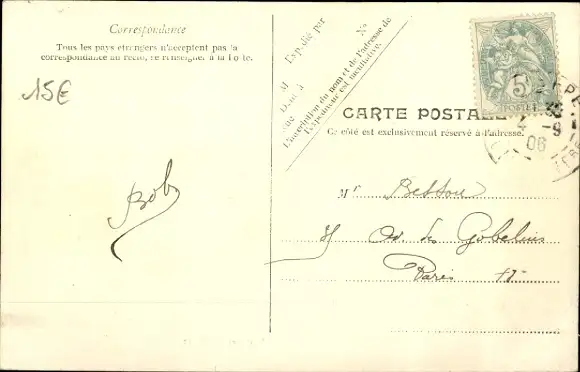 Correspondance
Tous les pays étrangers n'acceptent pas la
correspondance au recto, se renseigner à la Poste.
15€
Bob
Expédié par
N°
M
Rue
L'inscription du nom et de l'adresse de
l'expéditeur est facultative.
CARTE POSTALE
Ce côté est exclusivement réservé à l'adresse.
5
POSTES
-9
06
Mr
Av. des Gobelins
Paris